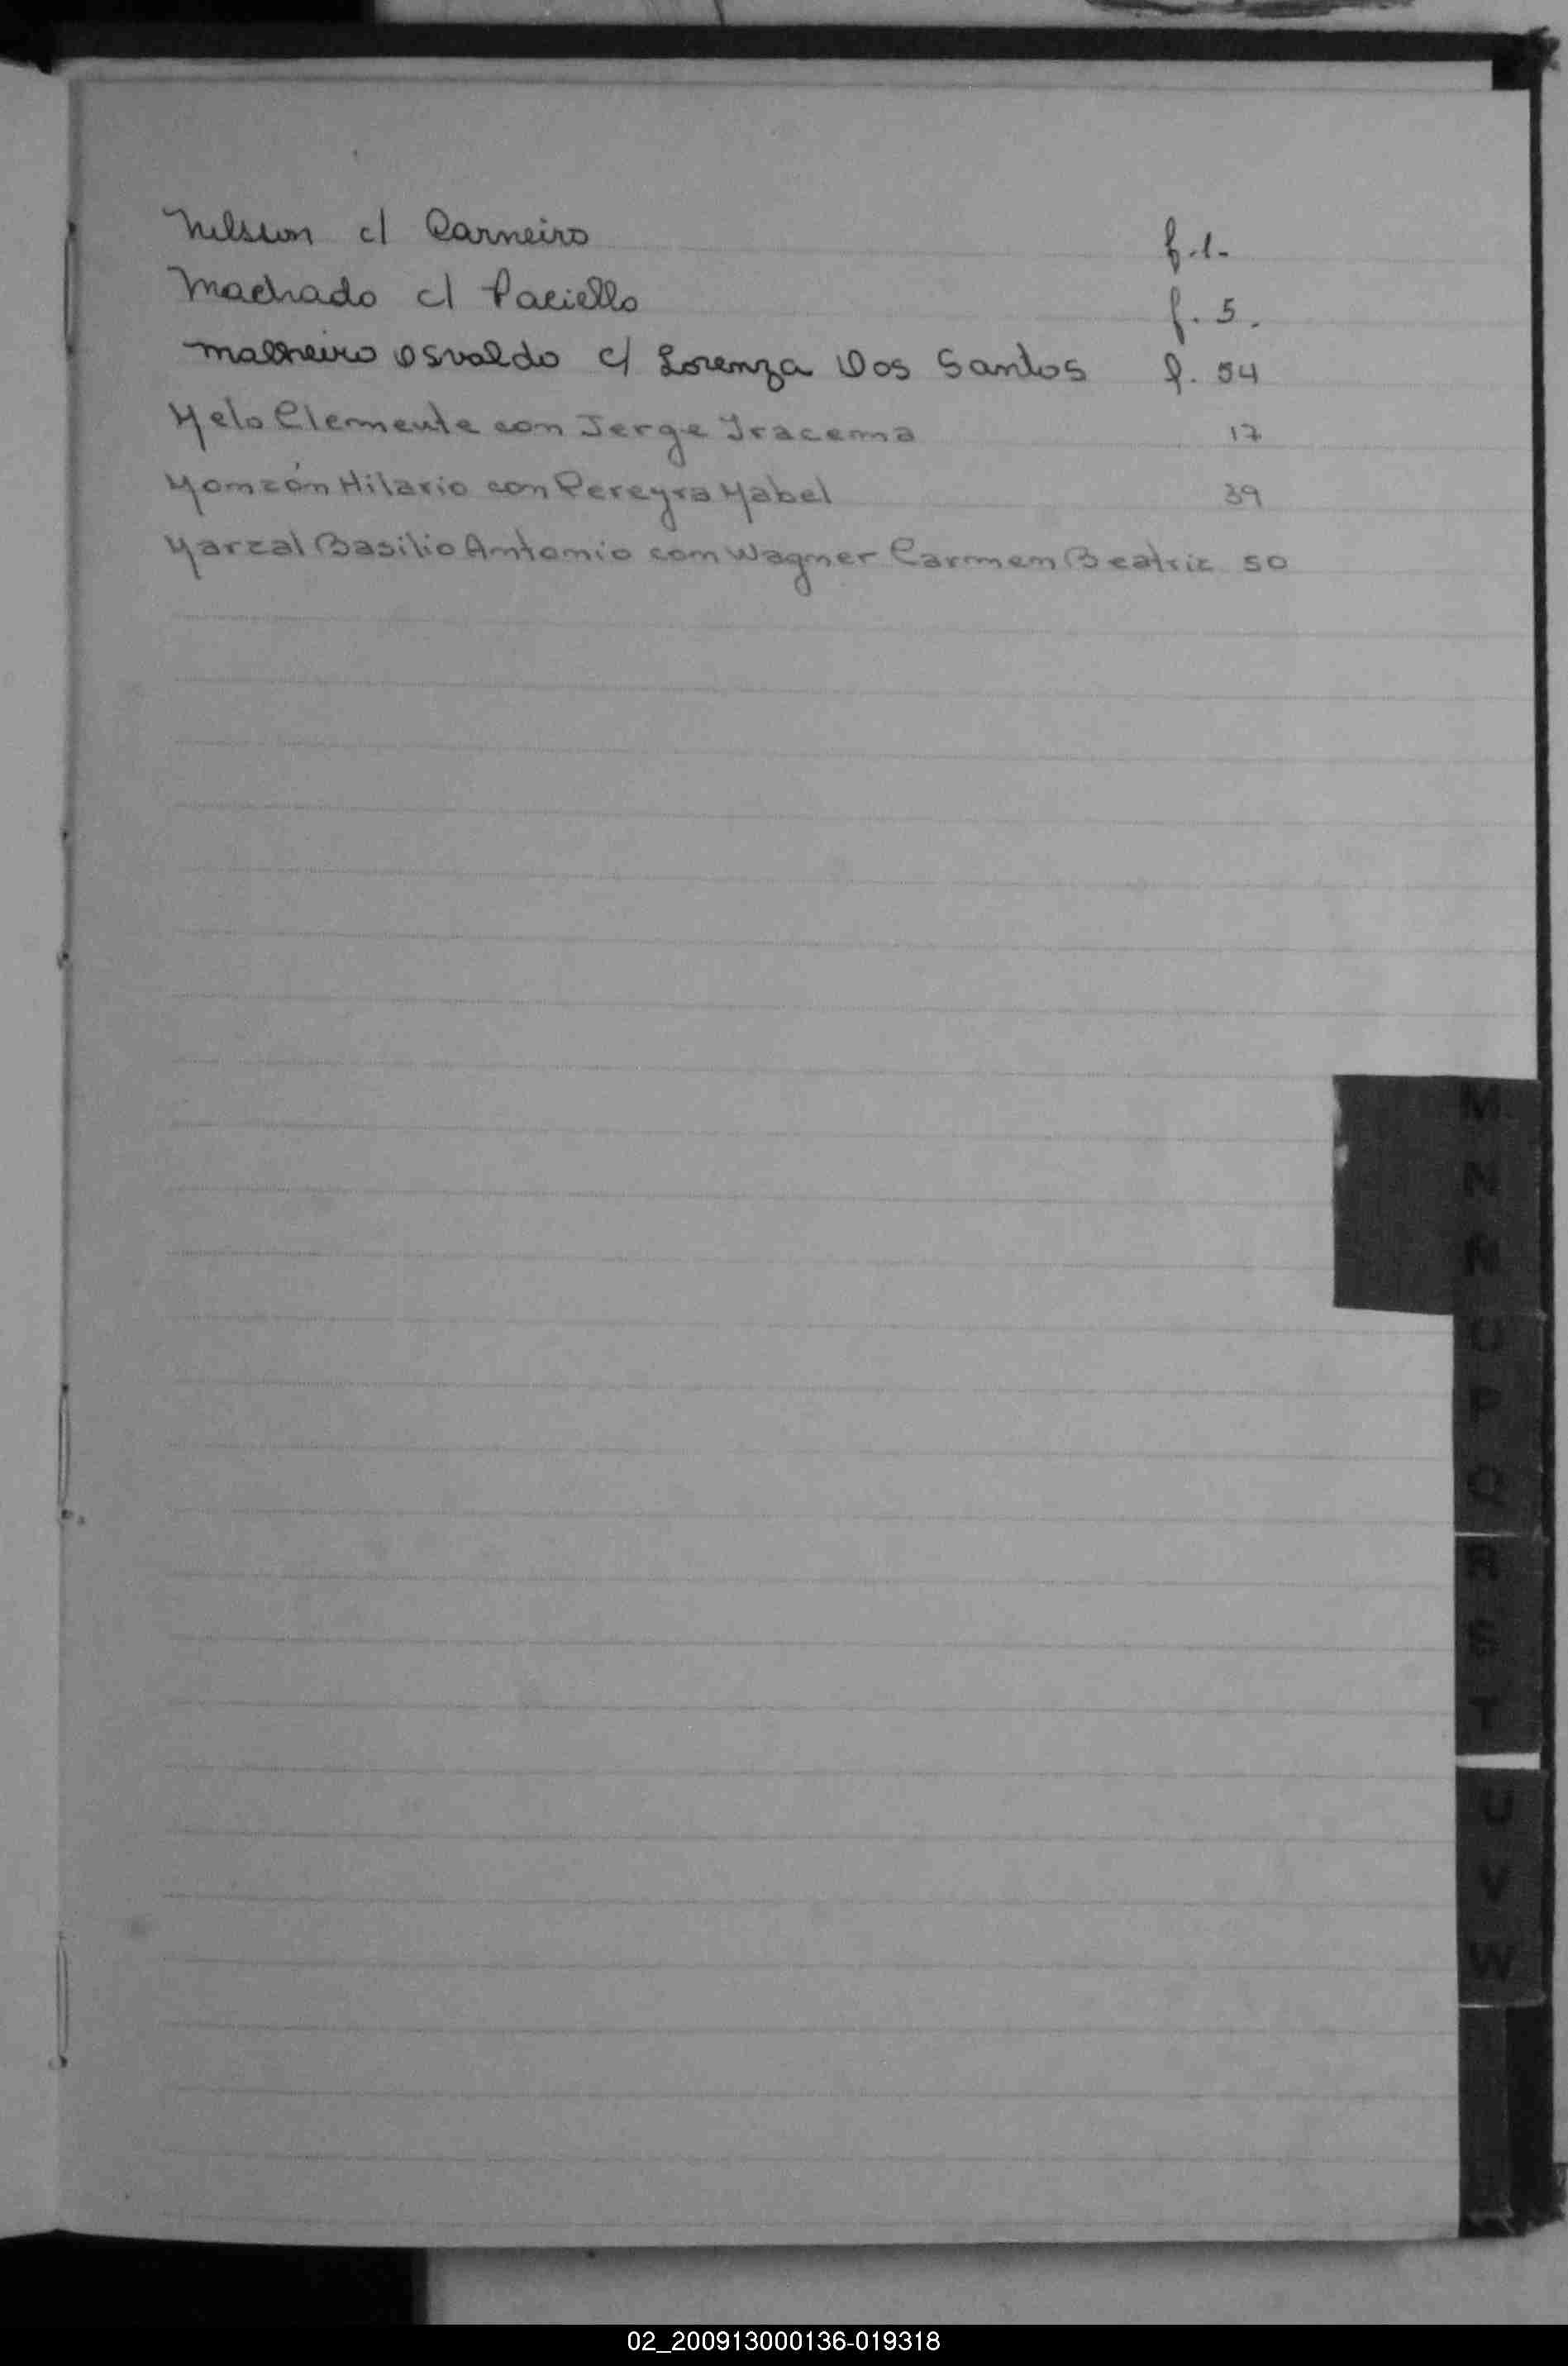 Nilsson c/ Carneiro f. 1.
Machado c/ Paciello f. 5.
Malheiro Osvaldo c/ Lorenza Dos Santos f. 54
Melo Clemente con Jerge Iracema 17
Monzón Hilario con Pereyra Mabel 39
Marzal Basilio Antonio con Wagner Carmen Beatriz 50
M
N
Ñ
O
P
Q
R
S
T
U
V
W
02_200913000136-019318